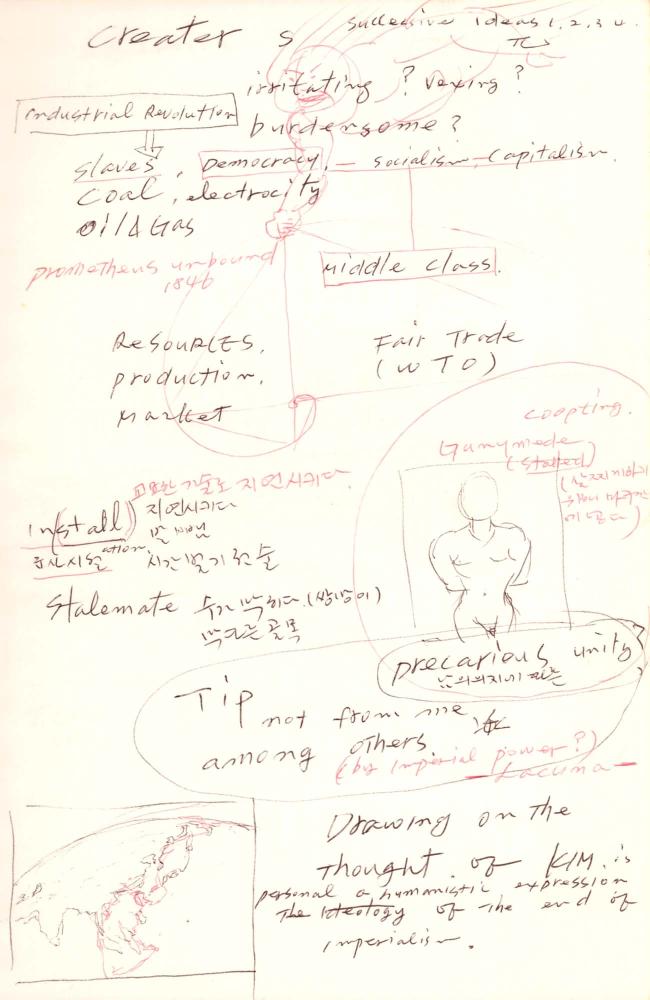 Creater s
Successive ideas 1, 2, 3 4.
irritating ? vexing ?
Industrial Revolution
burdersome ?
slaves, Democracy, — Socialism, Capitalism.
Coal, electrocity
oil & Gas
prometheus unbound
1846
Middle Class.
Resources,
production,
market
Fair Trade
(WTO)
Coopting.
Ganymede
(stalled)
교묘한 기술로 지연시키다.
지연시키다
install)
ation
시간벌기 전술
Stalemate 수가 막히다. (쌍방이)
막다른 골목
precarious unity
Tip not from me
among others
(by imperial power?)
Lacuna
Drawing on the
thought of KIM. is
personal a humanistic expression
The Ideology of the end of
imperialism.